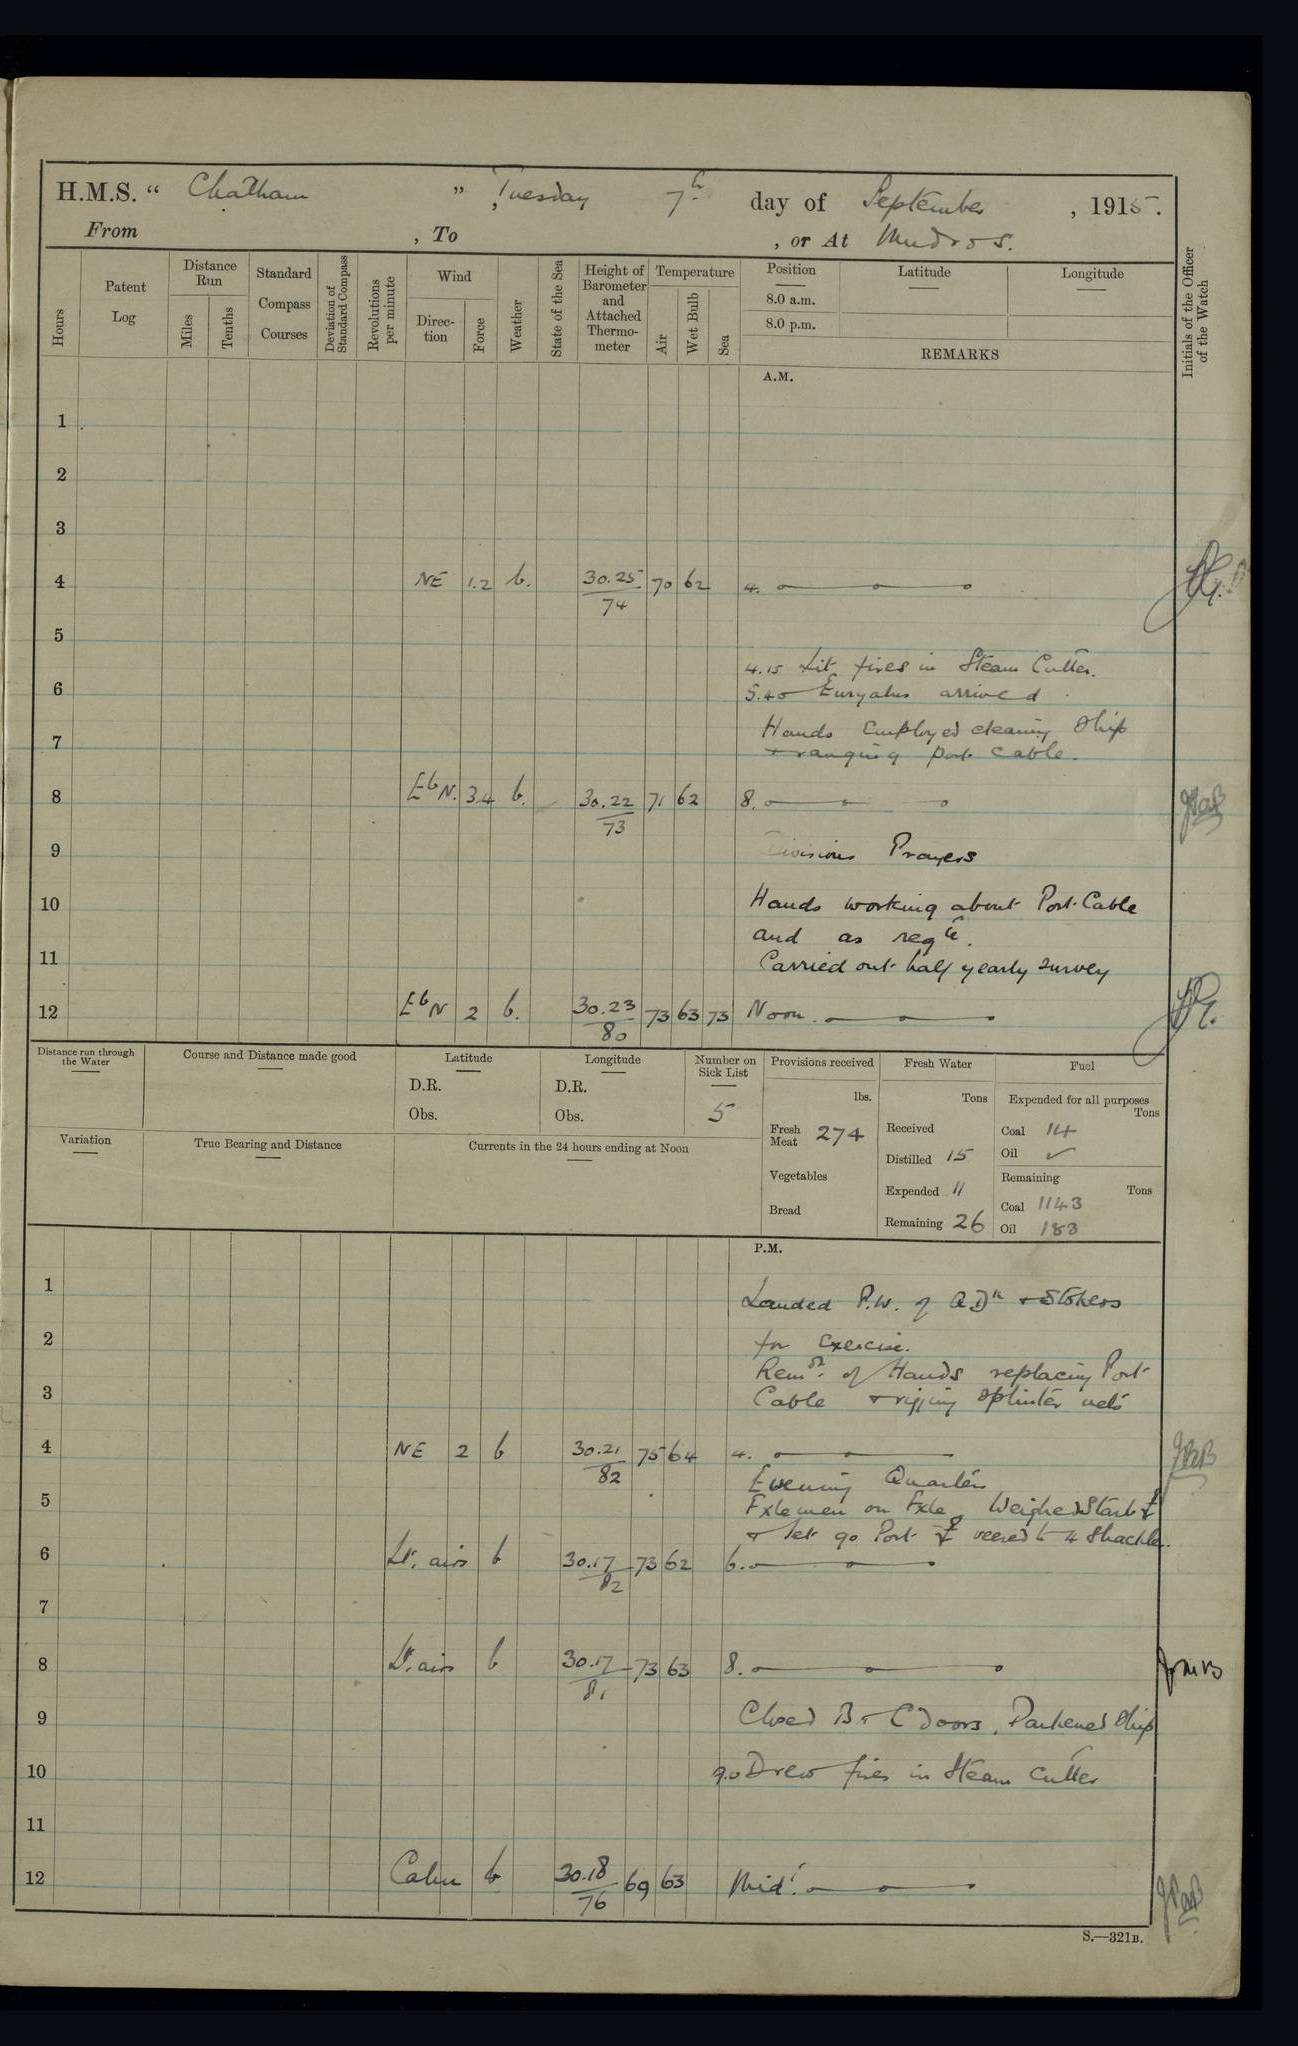 H.M.S. “ Chatham ” Tuesday 7th day of September , 1915.
From , To , or At Mudros.
Hours
Patent Log
Distance Run
Miles
Tenths
Standard Compass Courses
Deviation of Standard Compass
Revolutions per minute
Wind
Direc-tion
Force
Weather
State of the Sea
Height of Barometer and Attached Thermo-meter
Temperature
Air
Wet Bulb
Sea
Position
8.0 a.m.
8.0 p.m.
Latitude
Longitude
REMARKS
Initials of the Officer of the Watch
A.M.
1
2
3
4 NE 1.2 b. 30.25 70 62 4.
74
5
4.15 Lit fires in Steam Cutter.
6 5.40 Euryalus arrived
Hands Employed cleaning Ship
7 + ranging port cable.
8 EbN. 3.4 b. 30.22 71 62 8.
73
9 Divisions Prayers
10 Hands working about Port Cable
and as reqte.
11 Carried out half yearly survey
12 EbN 2 b. 30.23 73 63 73 Noon.
80
Distance run through the Water
Course and Distance made good
Latitude
D.R.
Obs.
Longitude
D.R.
Obs.
Number on Sick List
5
Provisions received
lbs.
Fresh Meat 274
Vegetables
Bread
Fresh Water
Tons
Received
Distilled 15
Expended 11
Remaining 26
Fuel
Expended for all purposes
Tons
Coal 14
Oil ✓
Remaining
Tons
Coal 1143
Oil 183
Variation
True Bearing and Distance
Currents in the 24 hours ending at Noon
P.M.
1 Landed P.W. of QDn + Stokers
2 for exercise.
Remdr. of Hands replacing Port
3 Cable + rigging splinter nets
4 NE 2 b 30.21 75 64 4.
82
Evening Quarters
5 Fxlemen on Fxle, Weighed Starbd
+ let go Port veered to 4 Shackles.
6 Lt. airs b 30.17 73 62 6.
82
7
8 Lt. airs b 30.17 73 63 8.
81
9 Closed B + C doors, Darkened Ship
10 9.0 Drew fires in Steam Cutter
11
12 Calm b 30.18 69 63 Midt.
76
S.—321B.